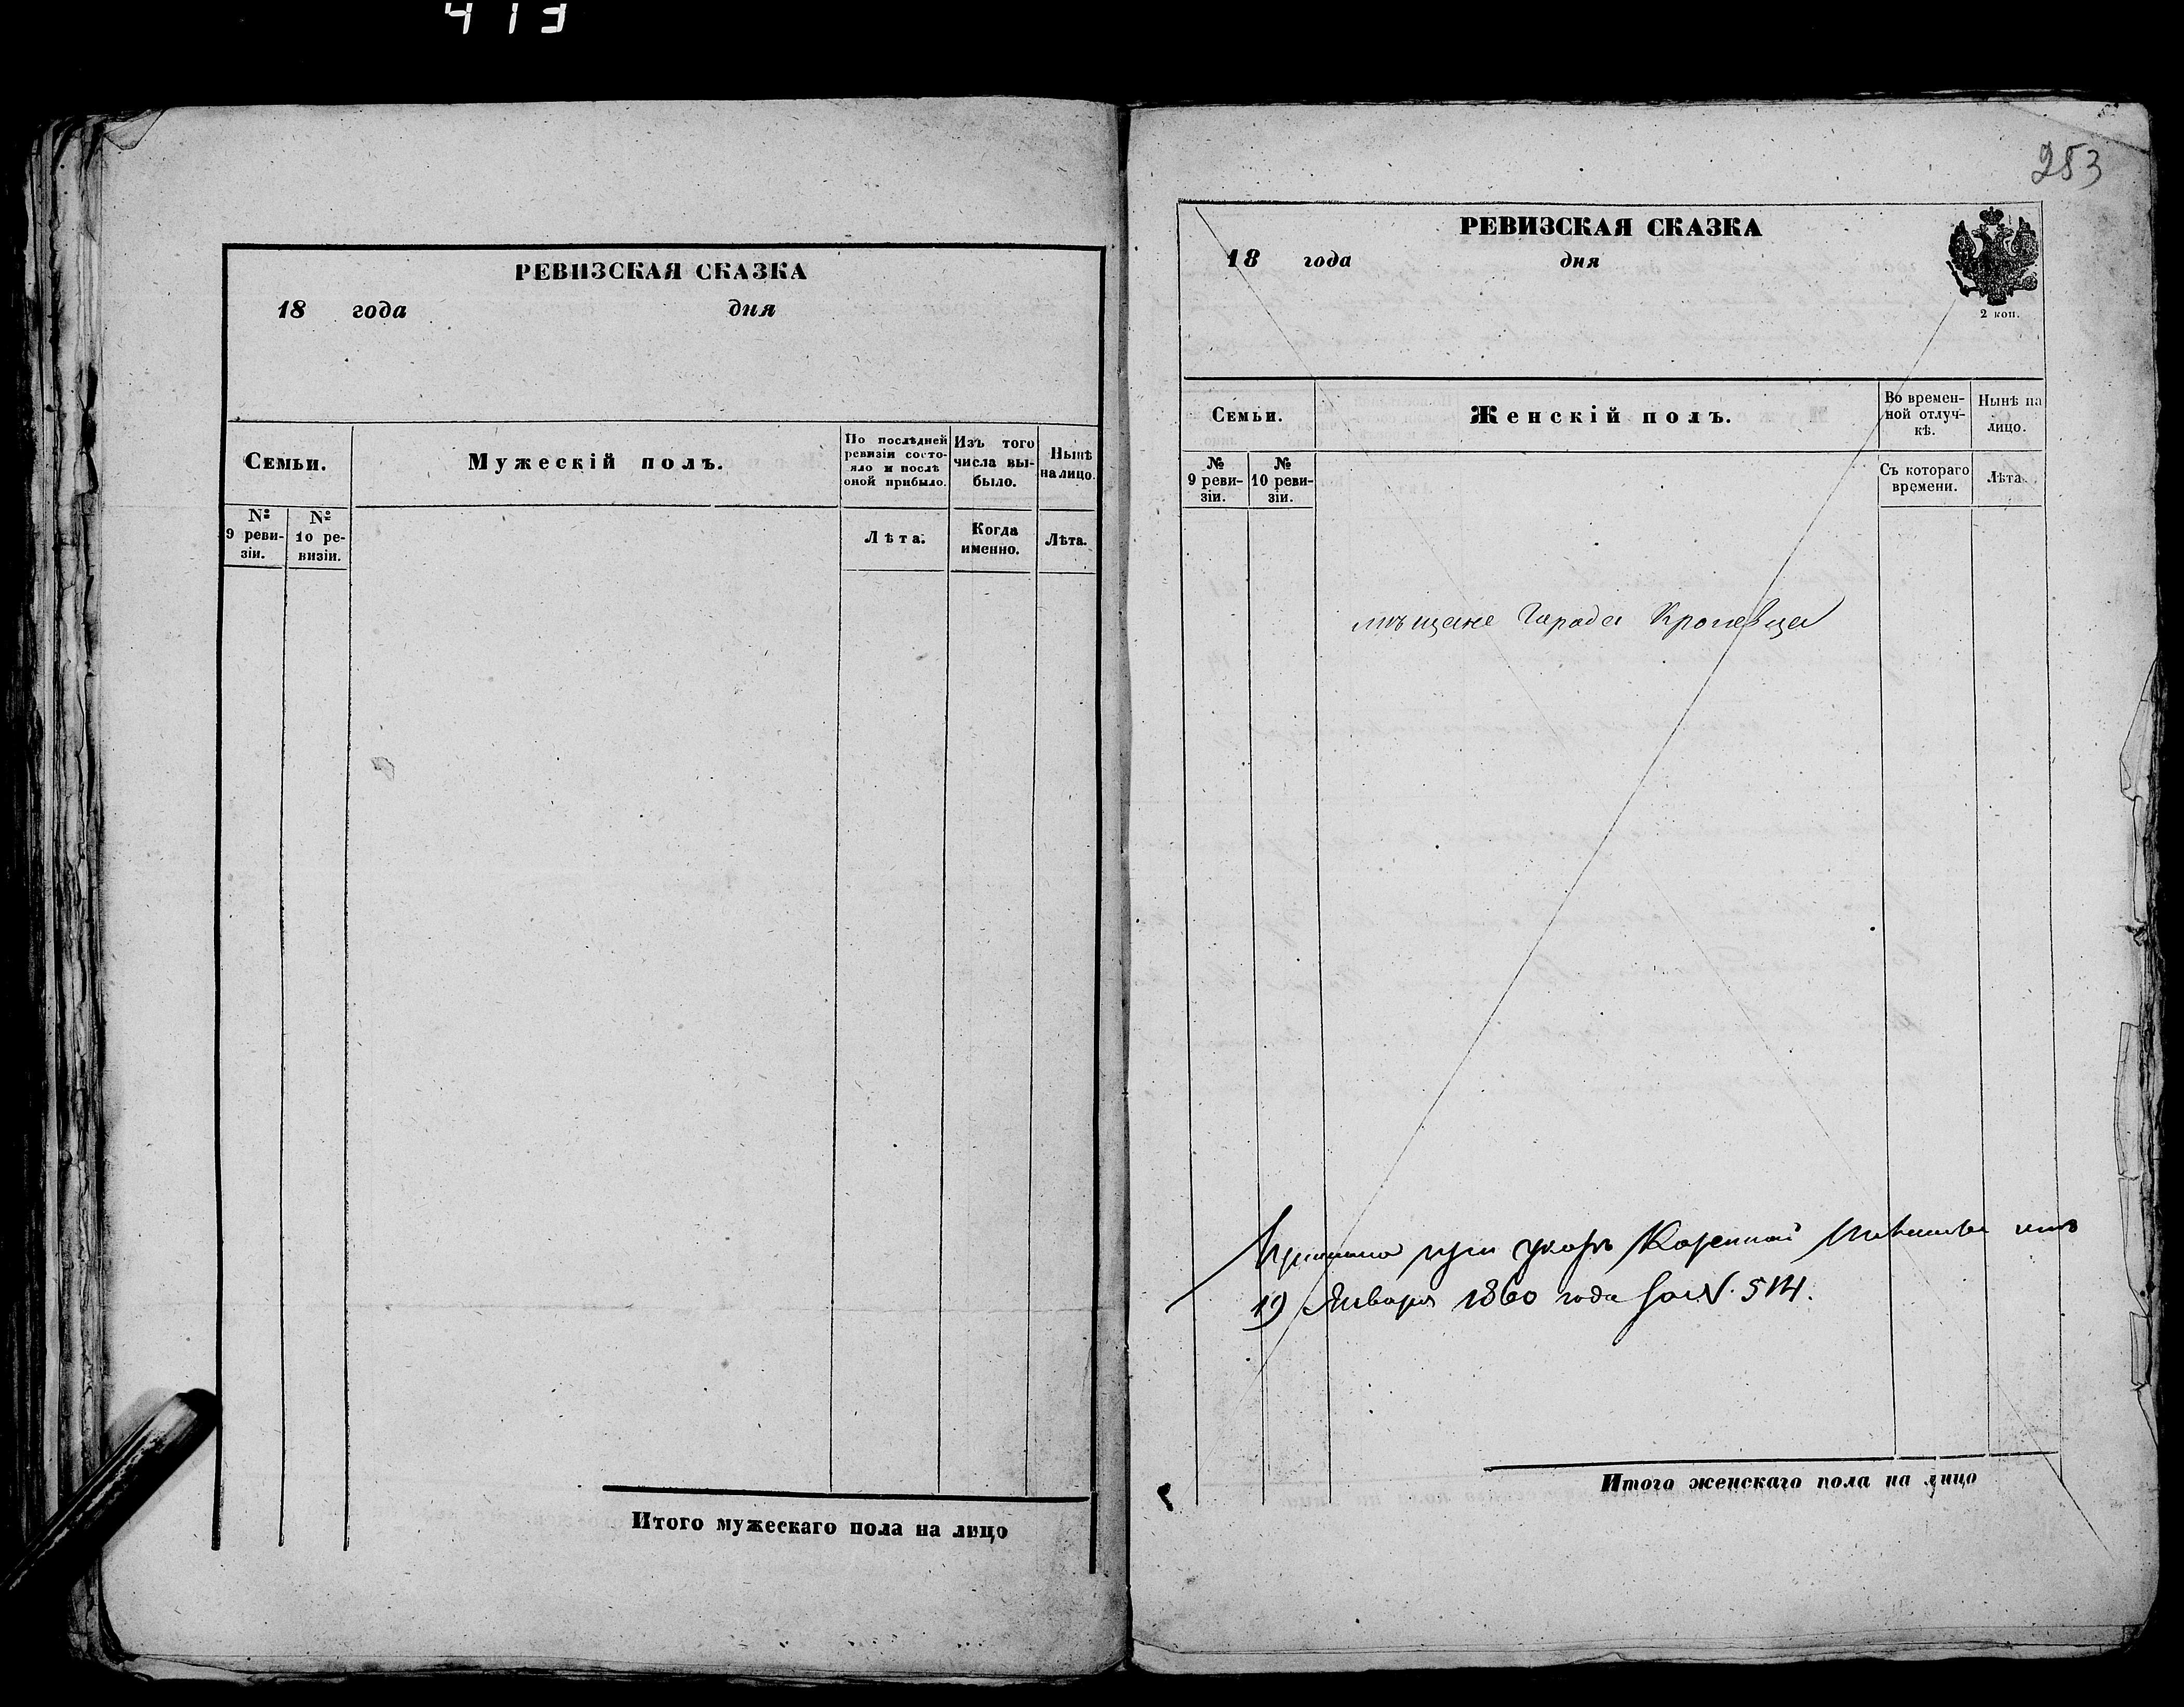 413
РЕВИЗСКАЯ СКАЗКА
18 года дня
Семьи.
Мужескій полъ.
По послѣдней ревизіи состояло и послѣ оной прибыло.
Изъ того числа выбыло.
Нынѣ на лицо.
№ 9 ревизіи.
№ 10 ревизіи.
Лѣта.
Когда именно.
Лѣта.
Итого мужескаго пола на лицо
253
РЕВИЗСКАЯ СКАЗКА
18 года дня
2 коп.
Семьи.
Женскій полъ.
Во временной отлучкѣ.
Нынѣ на лицо.
№ 9 ревизіи.
№ 10 ревизіи.
Съ котораго времени.
Лѣта.
мѣщане Города Кролевца
при Казенной Палаты отъ
19 Января 1860 года за N. 514.
Итого женскаго пола на лицо